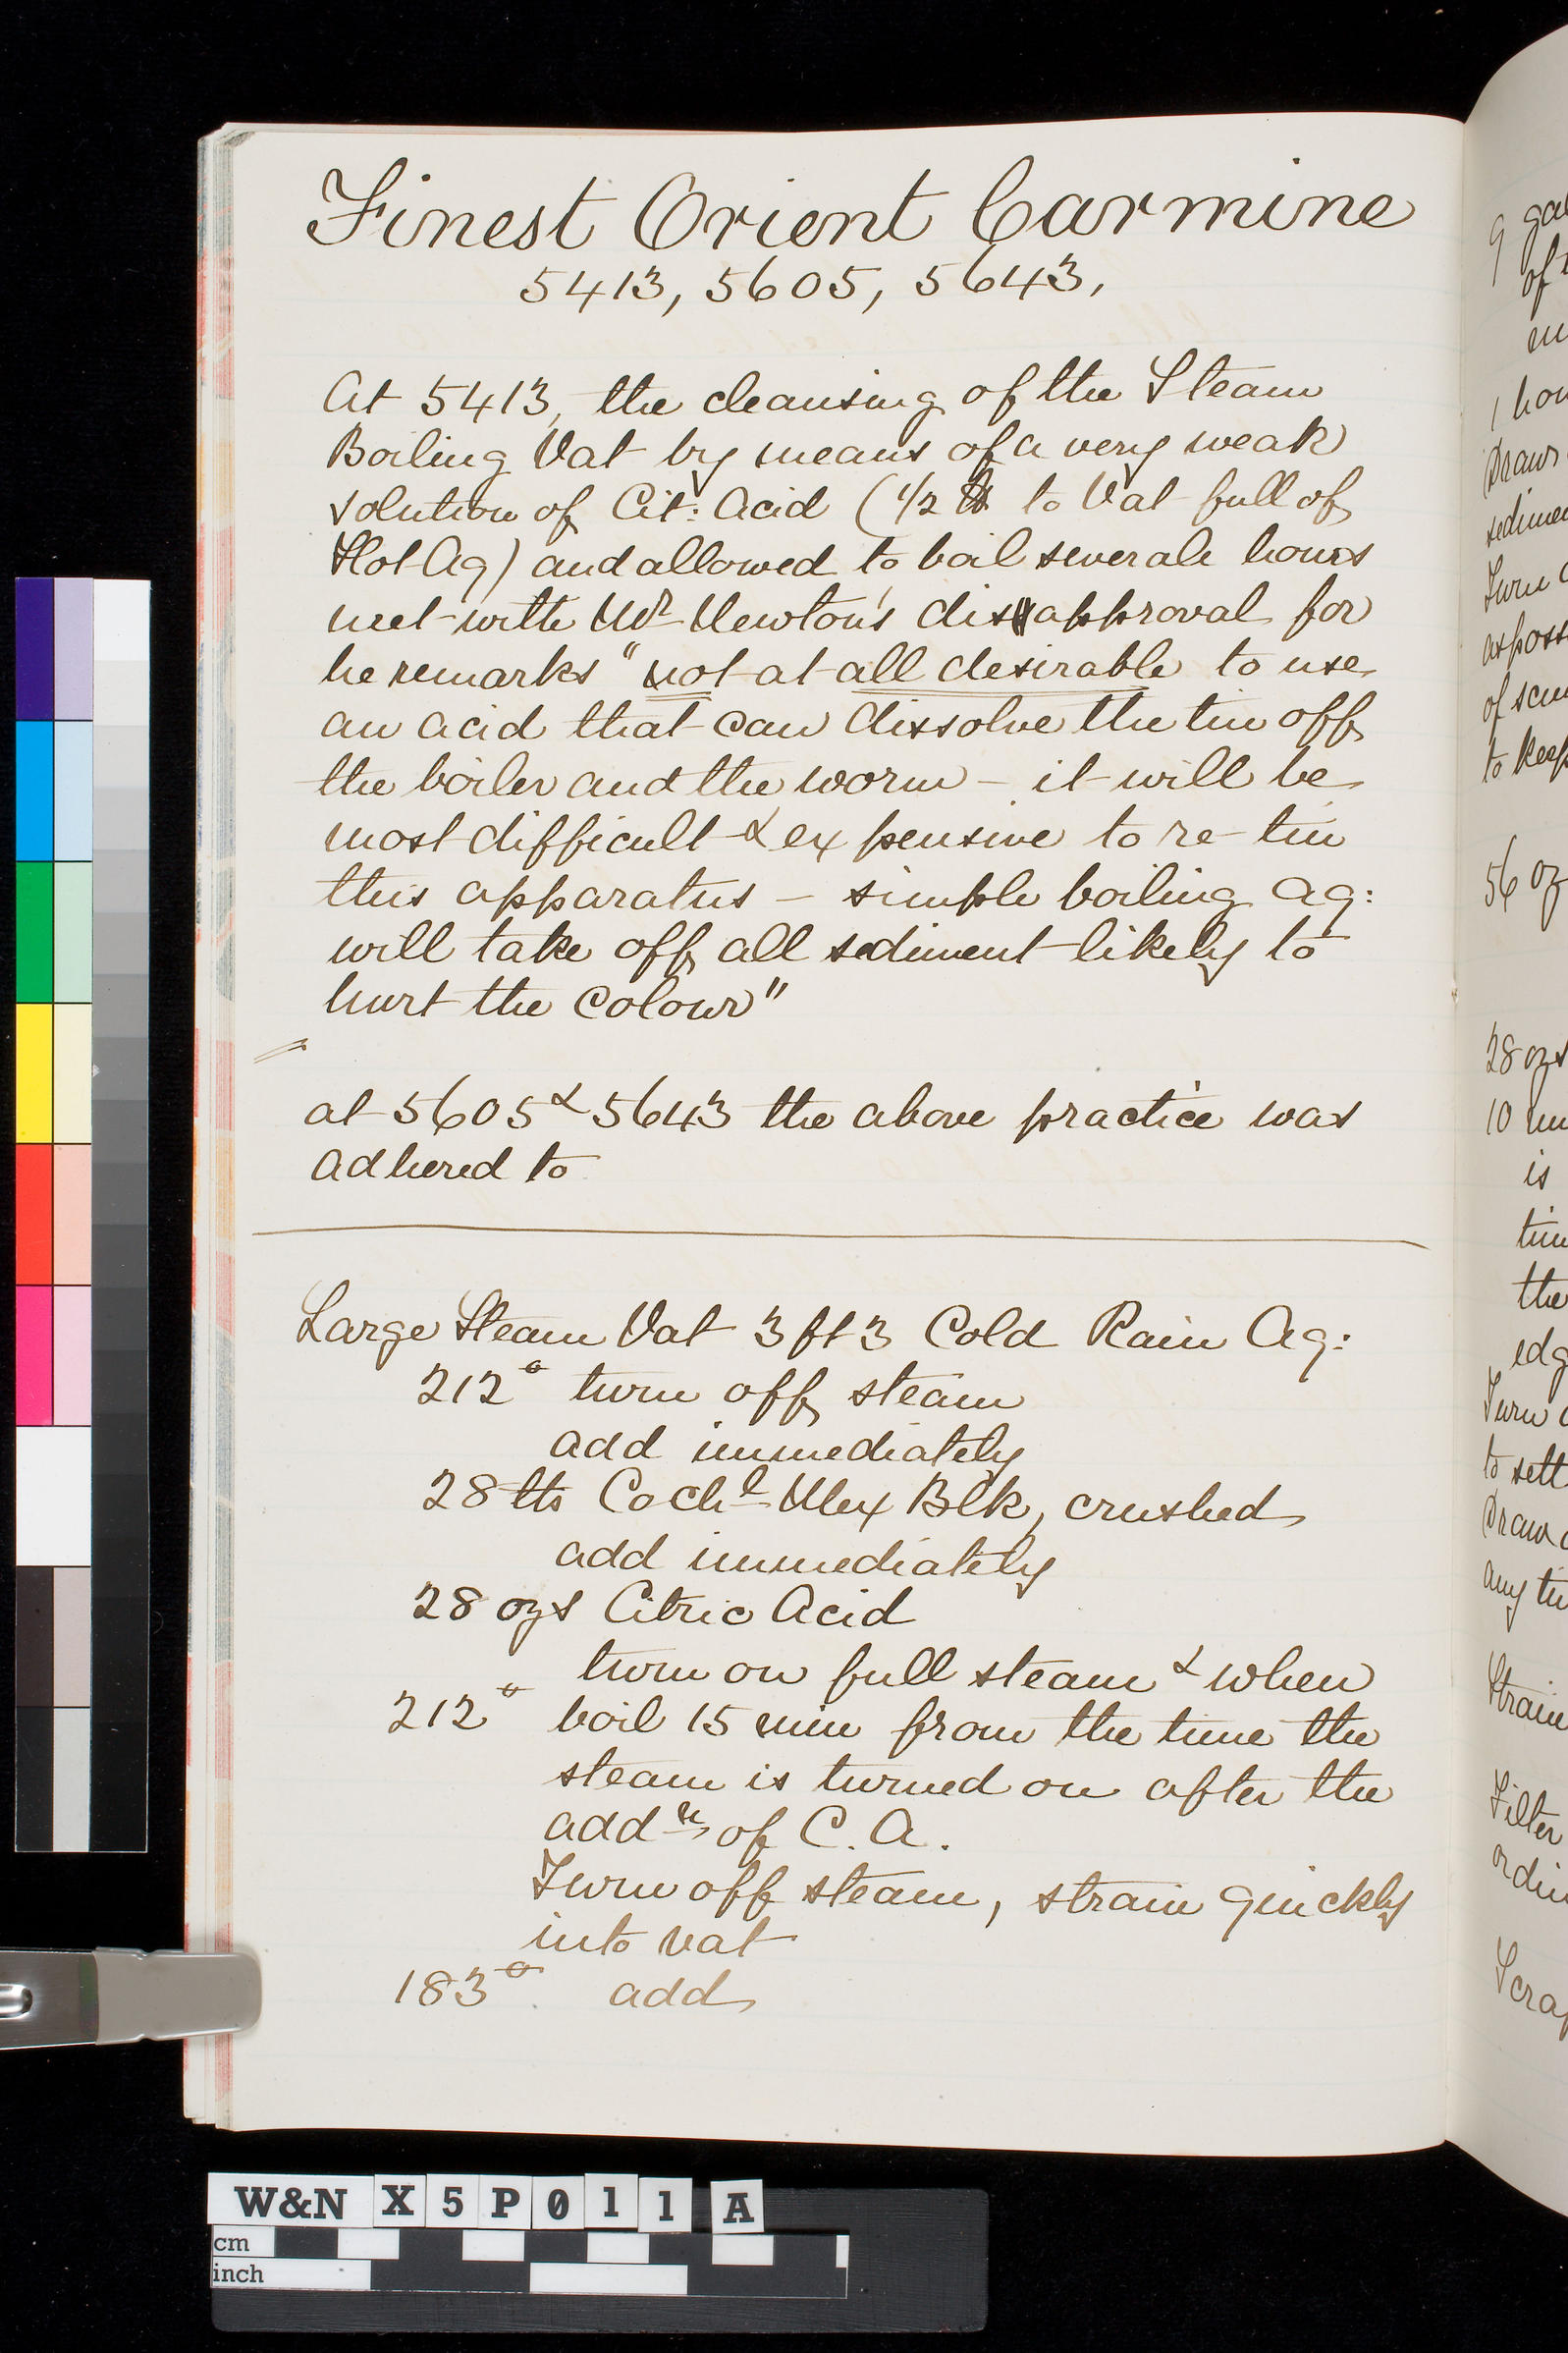 Finest Orient Carmine
5413, 5605, 5643,
At 5413, the cleansing of the Steam
Boiling Vat by means of a very weak
solution of Cit: Acid (1/2 lb to Vat full of
Hot Aq) and allowed to boil several hours
met with Mr Newton's disapproval for
he remarks "not at all desirable to use
an acid that can dissolve the tin off
the boiler and the worm - it will be
most difficult & expensive to re-tin
this apparatus - simple boiling Aq:
will take off all sediment likely to
hurt the colour"
at 5605 & 5643 the above practice was
adhered to
Large Steam Vat 3 ft 3 Cold Rain Aq:
212° turn off steam
add immediately
28 lbs Cochl Mex Blk, crushed
add immediately
28 ozs Citric Acid
turn on full steam & when
212° boil 15 min from the time the
steam is turned on after the
addn of C. A.
Turn off steam, strain quickly
into vat
183° add
9 gal
of
1 hou
Draw
sedimen
Turn
as poss
of scu
to keep
56 oz
28 ozs
10
is
tim
the
edg
Turn
to sett
Draw
any
Strain
Filter
ordin
Scrap
W&N X5P011A
cm
inch